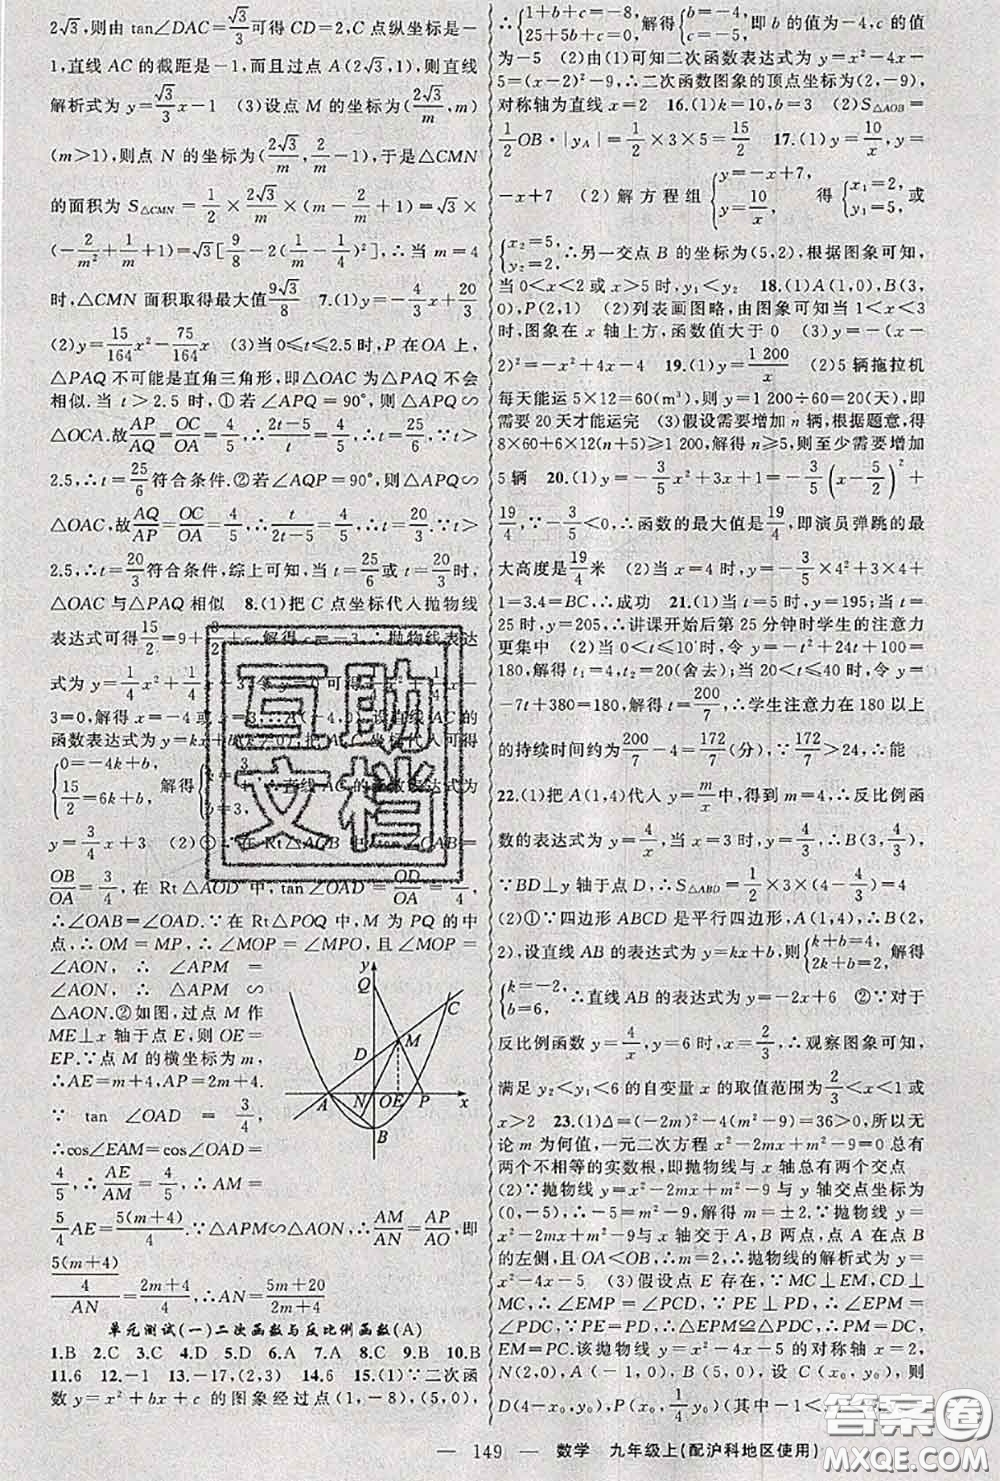 2√3,则由 tan∠DAC=√3/3可得 CD=2,C 点纵坐标是-
1,直线 AC 的截距是-1,而且过点 A(2√3,1),则直线
解析式为 y=√3/3 x-1 (3)设点 M 的坐标为(2√3/m,m)
(m>1),则点 N 的坐标为(2√3/m,2/m-1),于是△CMN
的面积为 S△CMN=1/2×2√3/m×(m-2/m+1)=√3×
(-2/m²+1/m+1)=√3[9/8-2(1/m-1/4)²],∴当 m=4
时,△CMN 面积取得最大值9√3/8 7.(1)y=-4/3x+20/3
(2)y=15/164x²-75/164x (3)当 0≤t≤2.5 时,P 在 OA 上,
△PAQ 不可能是直角三角形,即△OAC 为△PAQ 不会
相似.当 t>2.5 时,①若∠APQ=90°,则△APQ∽
△OCA.故AP/AQ=OC/OA=4/5,∴2t-5/t=4/5,∴t=25/6.∵t>
2.5,∴t=25/6符合条件.②若∠AQP=90°,则△APQ∽
△OAC,故AQ/AP=OC/OA=4/5,∴t/2t-5=4/5,∴t=20/3.∵t>
2.5,∴t=20/3符合条件,综上可知,当 t=25/6或 t=20/3时,
△OAC 与△PAQ 相似 8.(1)把 C 点坐标代入抛物线
表达式可得15/2=9+3/2+c,解得 c=-3,∴抛物线表达
式为 y=1/4x²+1/4x-3,令 y=0 可得
3=0,解得 x=-4 或 x=3,∴A(-4,0),设直线 AC 的
函数表达式为 y=kx+b(k≠0),把 A,C 坐标代入可得
{0=-4k+b, 15/2=6k+b, 解得 b=3, ∴直线 AC 的函数表达式为
y=3/4x+3 (2)①∵在 Rt△AOB 中,tan∠OAB=
OB/OA=3/4,在 Rt△AOD 中,tan∠OAD=OD/OA=3/4,
∴∠OAB=∠OAD.∵在 Rt△POQ 中,M 为 PQ 的中
点,∴OM=MP,∴∠MOP=∠MPO,且∠MOP=
∠AON,∴∠APM=
∠AON,∴△APM∽
△AON.②如图,过点 M 作
ME⊥x 轴于点 E,则 OE=
EP.∵点 M 的横坐标为 m,
∴AE=m+4,AP=2m+4.
∵tan∠OAD=3/4,
∴cos∠EAM=cos∠OAD=
4/5,∴AE/AM=4/5,∴AM=
5/4AE=5(m+4)/4.∵△APM∽△AON,∴AM/AN=AP/AO,即
5(m+4)/4/AN=2m+4/4,∴AN=5m+20/2m+4
y Q C M D A N O E P x B
单元测试(一)二次函数与反比例函数(A)
1.B 2.C 3.C 4.D 5.D 6.A 7.B 8.C 9.B 10.B
11.6 12.-1 13.-17,(2,3) 14.6 15.(1)∵二次函
数 y=x²+bx+c 的图象经过点(1,-8),(5,0),
∴{1+b+c=-8, 25+5b+c=0, 解得{b=-4, c=-5, 即 b 的值为-4,c 的值
为-5 (2)由(1)可知二次函数表达式为 y=x²-4x-
5=(x-2)²-9,∴二次函数图象的顶点坐标为(2,-9),
对称轴为直线 x=2 16.(1)k=10,b=3 (2)S△AOB=
1/2OB·|yA|=1/2×3×5=15/2 17.(1)y=10/x,y=
-x+7 (2)解方程组{y=-x+7, y=10/x, 得{x₁=2, y₁=5, 或
{x₂=5, y₂=2,∴另一交点 B 的坐标为(5,2),根据图象可知,
当 0<x<2 或 x>5 时,y₁<y₂ 18.(1)A(1,0),B(3,
0),P(2,1) (2)列表画图略,由图象可知当 1<x<3
时,图象在 x 轴上方,函数值大于 0 (3)y=-(x-
2)²=-x²+4x-4 19.(1)y=1 200/x (2)5 辆拖拉机
每天能运 5×12=60(m³),则 y=1 200÷60=20(天),即
需要 20 天才能运完 (3)假设需要增加 n 辆,根据题意,得
8×60+6×12(n+5)≥1 200,解得 n≥5,则至少需要增加
5 辆 20.(1)y=-3/5x²+3x+1=-3/5(x-5/2)²+
19/4,∵-3/5<0,∴函数的最大值是19/4,即演员弹跳的最
大高度是19/4米 (2)当 x=4 时,y=-3/5×4²+3×4+
1=3.4=BC,∴成功 21.(1)当 t=5 时,y=195;当 t=
25 时,y=205,∴讲课开始后第 25 分钟时学生的注意力
更集中 (2)当 0<t≤10 时,令 y=-t²+24t+100=
180,解得 t₁=4,t₂=20(舍去);当 20<t≤40 时,令 y=
-7t+380=180,解得 t=200/7,∴学生注意力在 180 以上
的持续时间约为200/7-4=172/7(分),∵172/7>24,∴能
22.(1)把 A(1,4)代入 y=m/x中,得到 m=4,∴反比例函
数的表达式为 y=4/x,当 x=3 时,y=4/3,∴B(3,4/3),
∵BD⊥y 轴于点 D,∴S△ABD=1/2×3×(4-4/3)=4
(2)①∵四边形 ABCD 是平行四边形,A(1,4),∴B(2,
2),设直线 AB 的表达式为 y=kx+b,则{k+b=4, 2k+b=2, 解得
{k=-2, b=6, ∴直线 AB 的表达式为 y=-2x+6 ②∵对于
反比例函数 y=4/x,y=6 时,x=2/3,∴观察图象可知,
满足 y₂<y₁<6 的自变量 x 的取值范围为2/3<x<1 或
x>2 23.(1)Δ=(-2m)²-4(m²-9)=36>0,所以无
论 m 为何值,一元二次方程 x²-2mx+m²-9=0 总有
两个不相等的实数根,即抛物线与 x 轴总有两个交点
(2)∵抛物线 y=x²-2mx+m²-9 与 y 轴交点坐标为
(0,-5),∴-5=m²-9.解得 m=±2.∵抛物线 y=
x²-2mx+m²-9 与 x 轴交于 A,B 两点,点 A 在点 B
的左侧,且 OA<OB,∴m=2,∴抛物线的解析式为 y=
x²-4x-5 (3)假设点 E 存在,∵MC⊥EM,CD⊥
MC,∴∠EMP=∠PCD.∵MC⊥PN,∴∠MEP=
∠PDC,∵PE=PD,∴△EMP≌△PDC,∴PM=DC,
EM=PC.∵该抛物线 y=x²-4x-5 的对称轴 x=2,
N(2,0),A(-1,0),B(5,0),设 C(x₀,y₀),则
D(4-x₀,y₀),P(x₀,1/4y₀)
— 149 — 数学 九年级上(配沪科地区使用)
互助
文档
答案圈
MXQE.COM